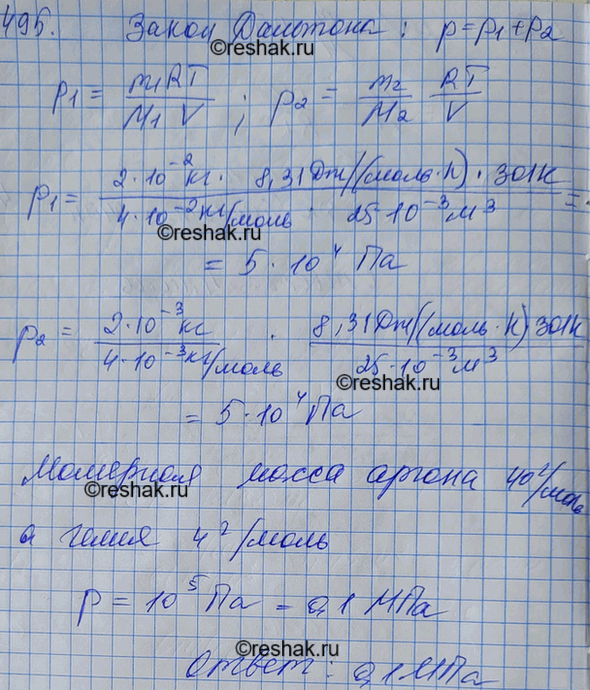 495. Закон Дальтона: p=p₁+p₂
©reshak.ru
p₁ = m₁RT / M₁ V ; p₂ = m₂ / M₂ RT / V
p₁ = 2·10⁻² кг · 8,31 Дж/(моль·К) · 301К / 4·10⁻² кг/моль · 25·10⁻³ м³ =
©reshak.ru
= 5·10⁴ Па
p₂ = 2·10⁻³ кг / 4·10⁻³ кг/моль · 8,31 Дж/(моль·К) 301К / 25·10⁻³ м³
©reshak.ru
= 5·10⁴ Па
Молярная масса аргона 40 г/моль
©reshak.ru
а гелия 4 г/моль
p = 10⁵ Па = 0,1 МПа
©reshak.ru
©reshak.ru
Ответ: 0,1 МПа